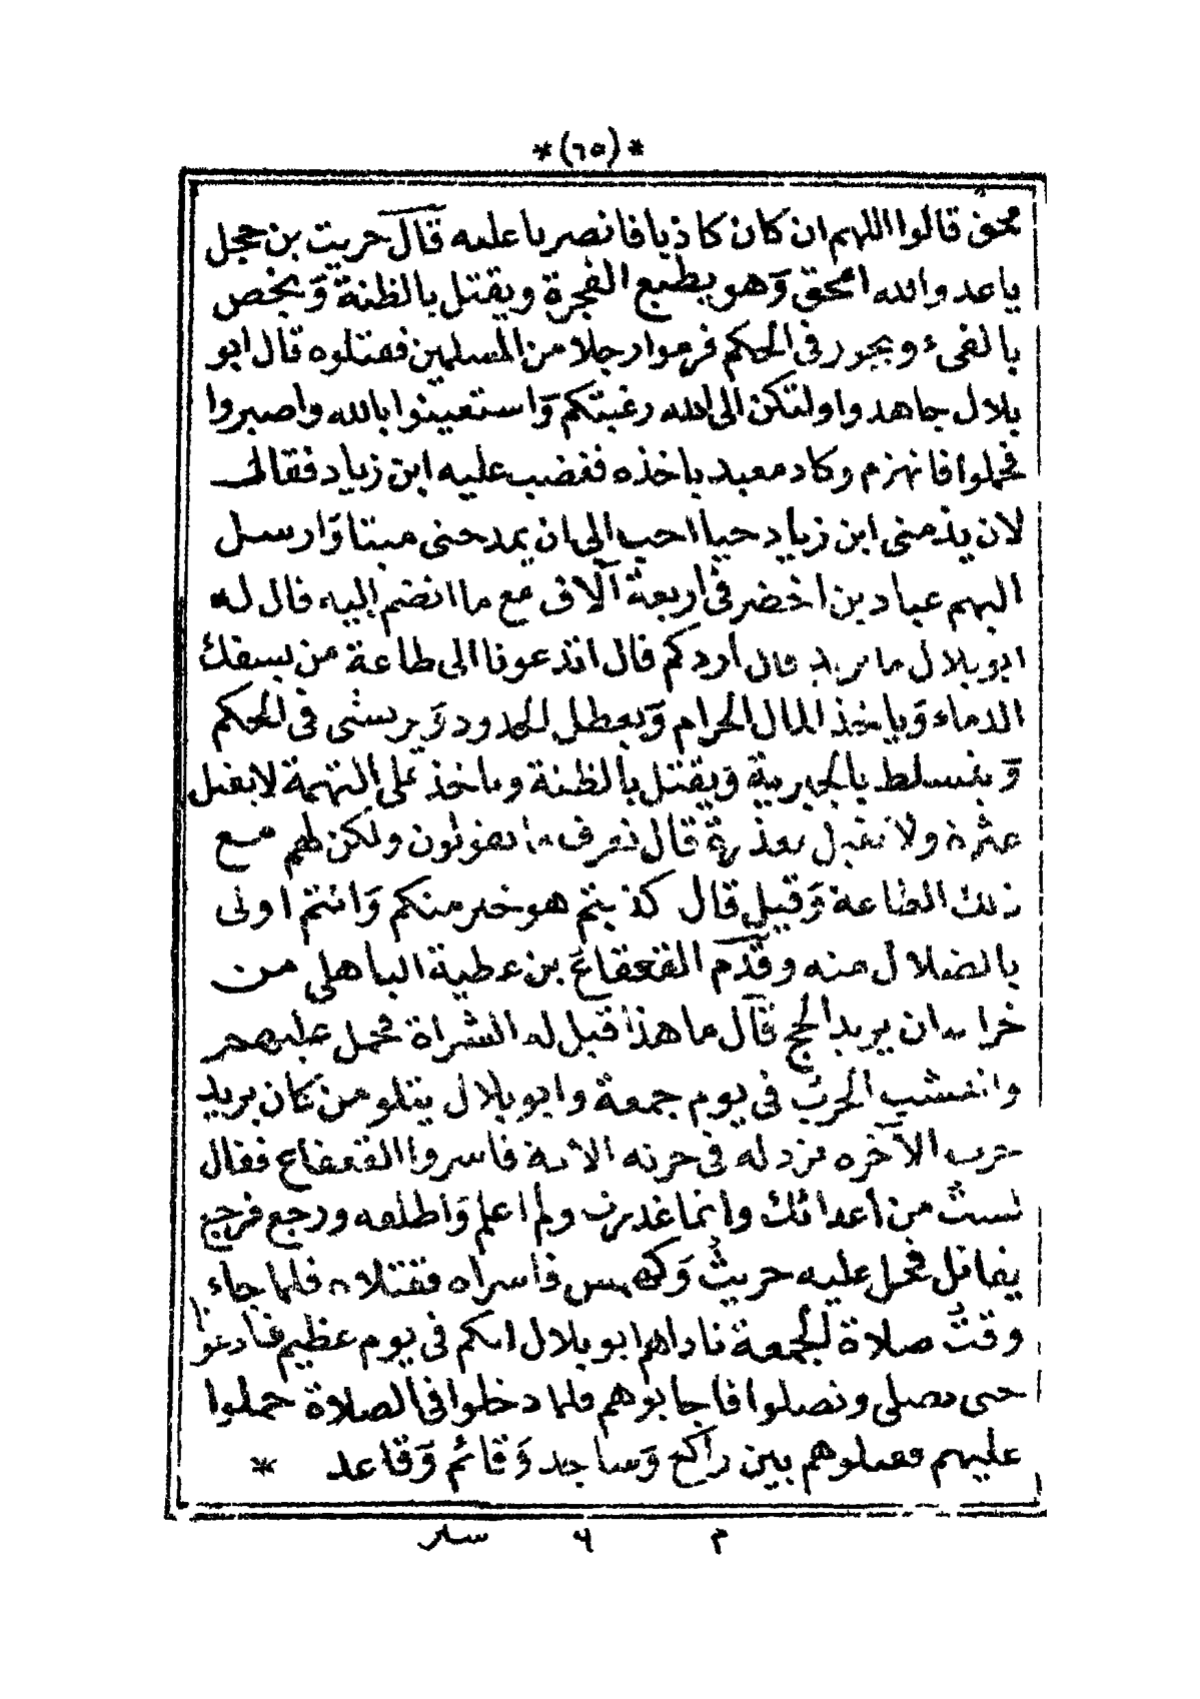 *(٦٥)*
محق قالوا اللهم ان كان كاذبا فانصرنا عليه قال حريث بن حجل
ياعدو الله امحق وهو يطيع الفجرة ويقتل بالظنة ويخص
بالفيء ويجور في الحكم فرموا رجلا من المسلمين فقتلوه قال ابو
بلال جاهدوا ولتكن الى الله رغبتكم واستعينوا بالله واصبروا
فحملوا فانهزم وكاد معبد ياخذه فغضب عليه ابن زياد فقال
لان يذمني ابن زياد حيا احب الي ان يمدحني ميتا وارسل
اليهم عباد بن اخضر في اربعة آلاف مع ما انضم اليه قال له
ابو بلال ما تريد قال أردكم قال اتدعونا الى طاعة من يسفك
الدماء وياخذ المال الحرام ويعطل الحدود ويرتشي في الحكم
ويتسلط بالجبرية ويقتل بالظنة وياخذ على التهمة لا يقيل
عثرة ولا يقبل معذرة قال نعرف ما تقولون ولكن لهم مع
ذلك الطاعة وقيل قال كذبتم هو خير منكم وانتم اولى
بالضلال منه وقدم القعقاع بن عطية الباهلي من
خراسان يريد الحج قال ما هذا قيل له الشراة فحمل عليهم
وانتشب الحرب في يوم جمعة وابو بلال يتلو من كان يريد
حرث الآخرة نزد له في حرثه الاية فاسروا القعقاع فقال
لست من أعدائك وانما غدرت ولم اعلم واطلعه ورجع فرجع
يقاتل فحمل عليه حريث وكهمس فاسراه فقتلاه فلما جاء
وقت صلاة الجمعة ناداهم ابو بلال انكم في يوم عظيم فنادعونا
حتى نصلي وتصلوا فاجابوهم فلما دخلوا في الصلاة حملوا
عليهم فقتلوهم بين راكع وساجد وقائم وقاعد *
م ٩ سير